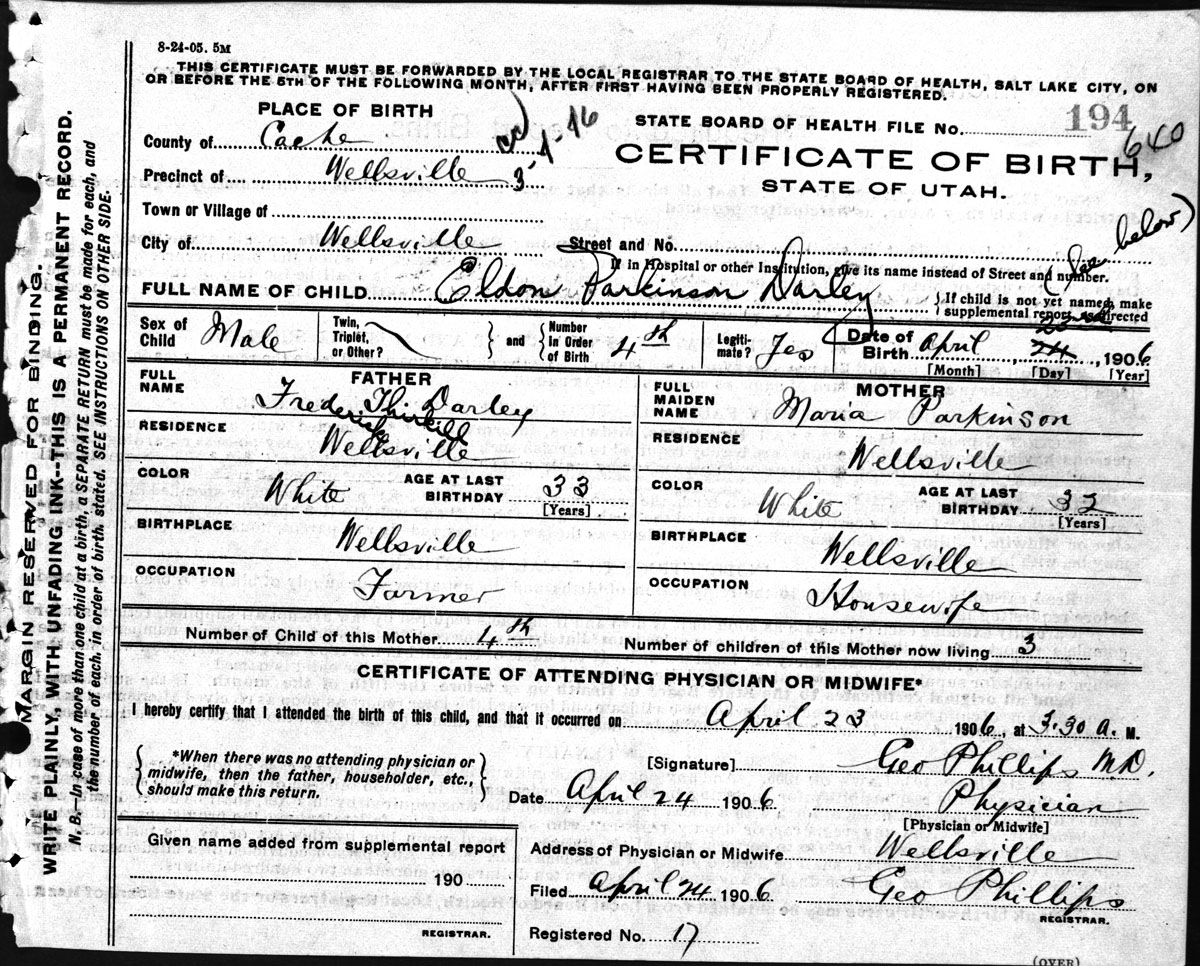 8-24-05. 5M
THIS CERTIFICATE MUST BE FORWARDED BY THE LOCAL REGISTRAR TO THE STATE BOARD OF HEALTH, SALT LAKE CITY, ON
OR BEFORE THE 5TH OF THE FOLLOWING MONTH, AFTER FIRST HAVING BEEN PROPERLY REGISTERED.
PLACE OF BIRTH
STATE BOARD OF HEALTH FILE No. 194
640
County of Cache
CERTIFICATE OF BIRTH,
STATE OF UTAH.
Precinct of Wellsville 3
Town or Village of
City of Wellsville Street and No. (See below)
If in Hospital or other Institution, give its name instead of Street and number.
FULL NAME OF CHILD Eldon Parkinson Darley
{If child is not yet named, make
supplemental report as directed
Sex of Child Male Twin, Triplet, or Other? } and { Number In Order of Birth 4th Legitimate? Yes Date of Birth April 24, 1906
23rd
[Month] [Day] [Year]
FATHER
FULL NAME Frederick Darley
RESIDENCE Wellsville
COLOR White AGE AT LAST BIRTHDAY 33
[Years]
BIRTHPLACE Wellsville
OCCUPATION Farmer
MOTHER
FULL MAIDEN NAME Maria Parkinson
RESIDENCE Wellsville
COLOR White AGE AT LAST BIRTHDAY 32
[Years]
BIRTHPLACE Wellsville
OCCUPATION Housewife
Number of Child of this Mother 4th Number of children of this Mother now living 3
CERTIFICATE OF ATTENDING PHYSICIAN OR MIDWIFE*
I hereby certify that I attended the birth of this child, and that it occurred on April 23 1906, at 3.30 a. M.
{*When there was no attending physician or
midwife, then the father, householder, etc.,
should make this return.}
[Signature] Geo Phillips M.D.
Date April 24 1906. Physician
[Physician or Midwife]
Given name added from supplemental report
190
REGISTRAR.
Address of Physician or Midwife Wellsville
Filed April 24 1906 Geo Phillips
REGISTRAR.
Registered No. 17
(OVER)
MARGIN RESERVED FOR BINDING.
WRITE PLAINLY, WITH UNFADING INK--THIS IS A PERMANENT RECORD.
N. B.--In case of more than one child at a birth, a SEPARATE RETURN must be made for each, and
the number of each, in order of birth, stated. SEE INSTRUCTIONS ON OTHER SIDE.